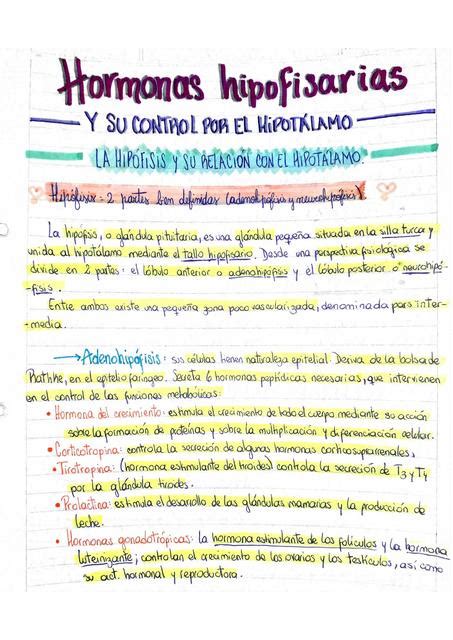 Hormonas hipofisarias
Y SU CONTROL POR EL HIPOTÁLAMO
LA HIPÓFISIS Y SU RELACIÓN CON EL HIPOTÁLAMO.
Hipófisis = 2 partes bien definidas (adenohipófisis y neurohipófisis)
La hipófisis, o glándula pituitaria, es una glándula pequeña situada en la silla turca y
unida al hipotálamo mediante el tallo hipofisario. Desde una perspectiva fisiológica se
divide en 2 partes: el lóbulo anterior o adenohipófisis y el lóbulo posterior o neurohipó-
-fisis.
Entre ambos existe una pequeña zona poco vascularizada, denominada pars inter-
-media.
→ Adenohipófisis: sus células tienen naturaleza epitelial. Deriva de la bolsa de
Rathke, en el epitelio faríngeo. Secreta 6 hormonas peptídicas necesarias, que intervienen
en el control de las funciones metabólicas:
• Hormona del crecimiento: estimula el crecimiento de todo el cuerpo mediante su acción
sobre la formación de proteínas y sobre la multiplicación y diferenciación celular.
• Corticotropina: controla la secreción de algunas hormonas corticosuprarrenales,
• Tirotropina: (hormona estimulante del tiroides) controla la secreción de T3 y T4
por la glándula tiroides.
• Prolactina: estimula el desarrollo de las glándulas mamarias y la producción de
leche.
• Hormonas gonadotrópicas: la hormona estimulante de los folículos y la hormona
luteinizante; controlan el crecimiento de los ovarios y los testículos, así como
su act. hormonal y reproductora.